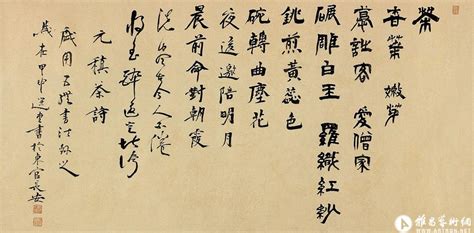 茶
香葉 嫩芽
慕詩客 愛僧家
碾雕白玉 羅織紅紗
銚煎黃蕊色
碗轉曲塵花
夜後邀陪明月
晨前命對朝霞
洗盡古今人不倦
將至醉後豈堪誇
元稹茶詩
用五體書法
歲在甲申 書於東官長安
雅昌藝術網